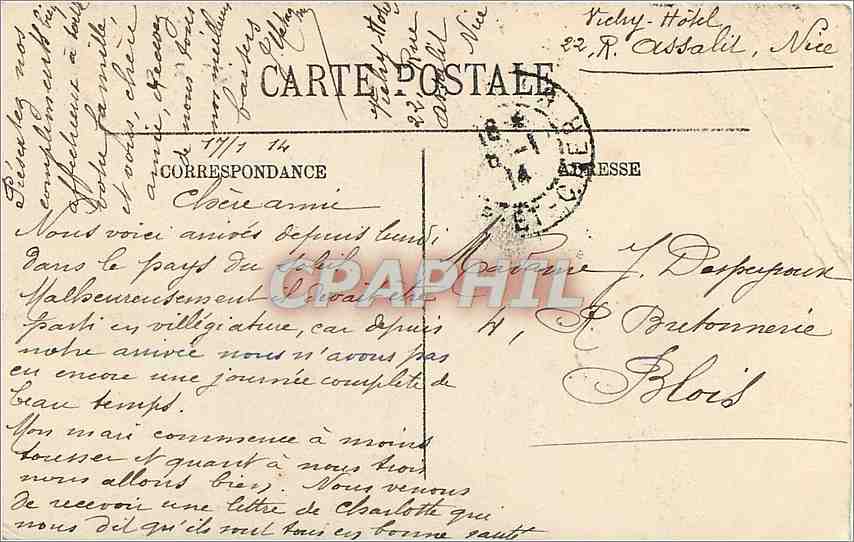 Vichy-Hôtel
22, R. Assalit, Nice
CARTE POSTALE
17/1 14
CORRESPONDANCE
ADRESSE
Chère amie
Nous voici arrivés depuis lundi
dans le pays du soleil
Malheureusement il doit être
parti en villégiature, car depuis
notre arrivée nous n'avons pas
eu encore une journée complète de
beau temps.
Mon mari commence à moins
tousser et quant à nous trois
nous allons bien. Nous venons
de recevoir une lettre de Charlotte qui
nous dit qu'ils sont tous en bonne santé
Présentez nos
compliments bien
affectueux à toute
votre famille
et vous, chère
amie, recevez
de nous tous
nos meilleurs
baisers
Vichy-Hôtel
22 Rue
Assalit
Nice
Madame J. Despeyroux
4, R. Bretonnerie
Blois
18 *
8 -1
14
ET-CHER
CPAPHIL